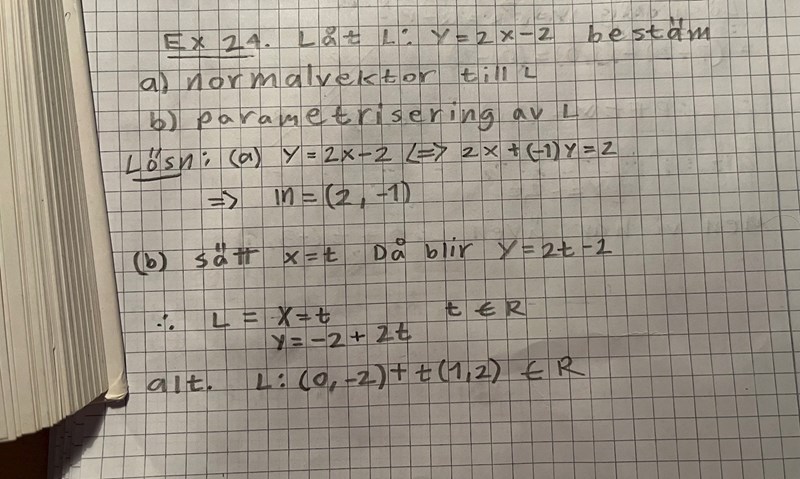 Ex 24. Låt L: y=2x-2 bestäm
a) normalvektor till L
b) parametrisering av L
Lösn: (a) y=2x-2 <=> 2x+(-1)y=2
=> m=(2,-1)
(b) sätt x=t Då blir y=2t-2
∴ L = x=t t ∈ R
y=-2+2t
alt. L: (0,-2)+t(1,2) ∈ R